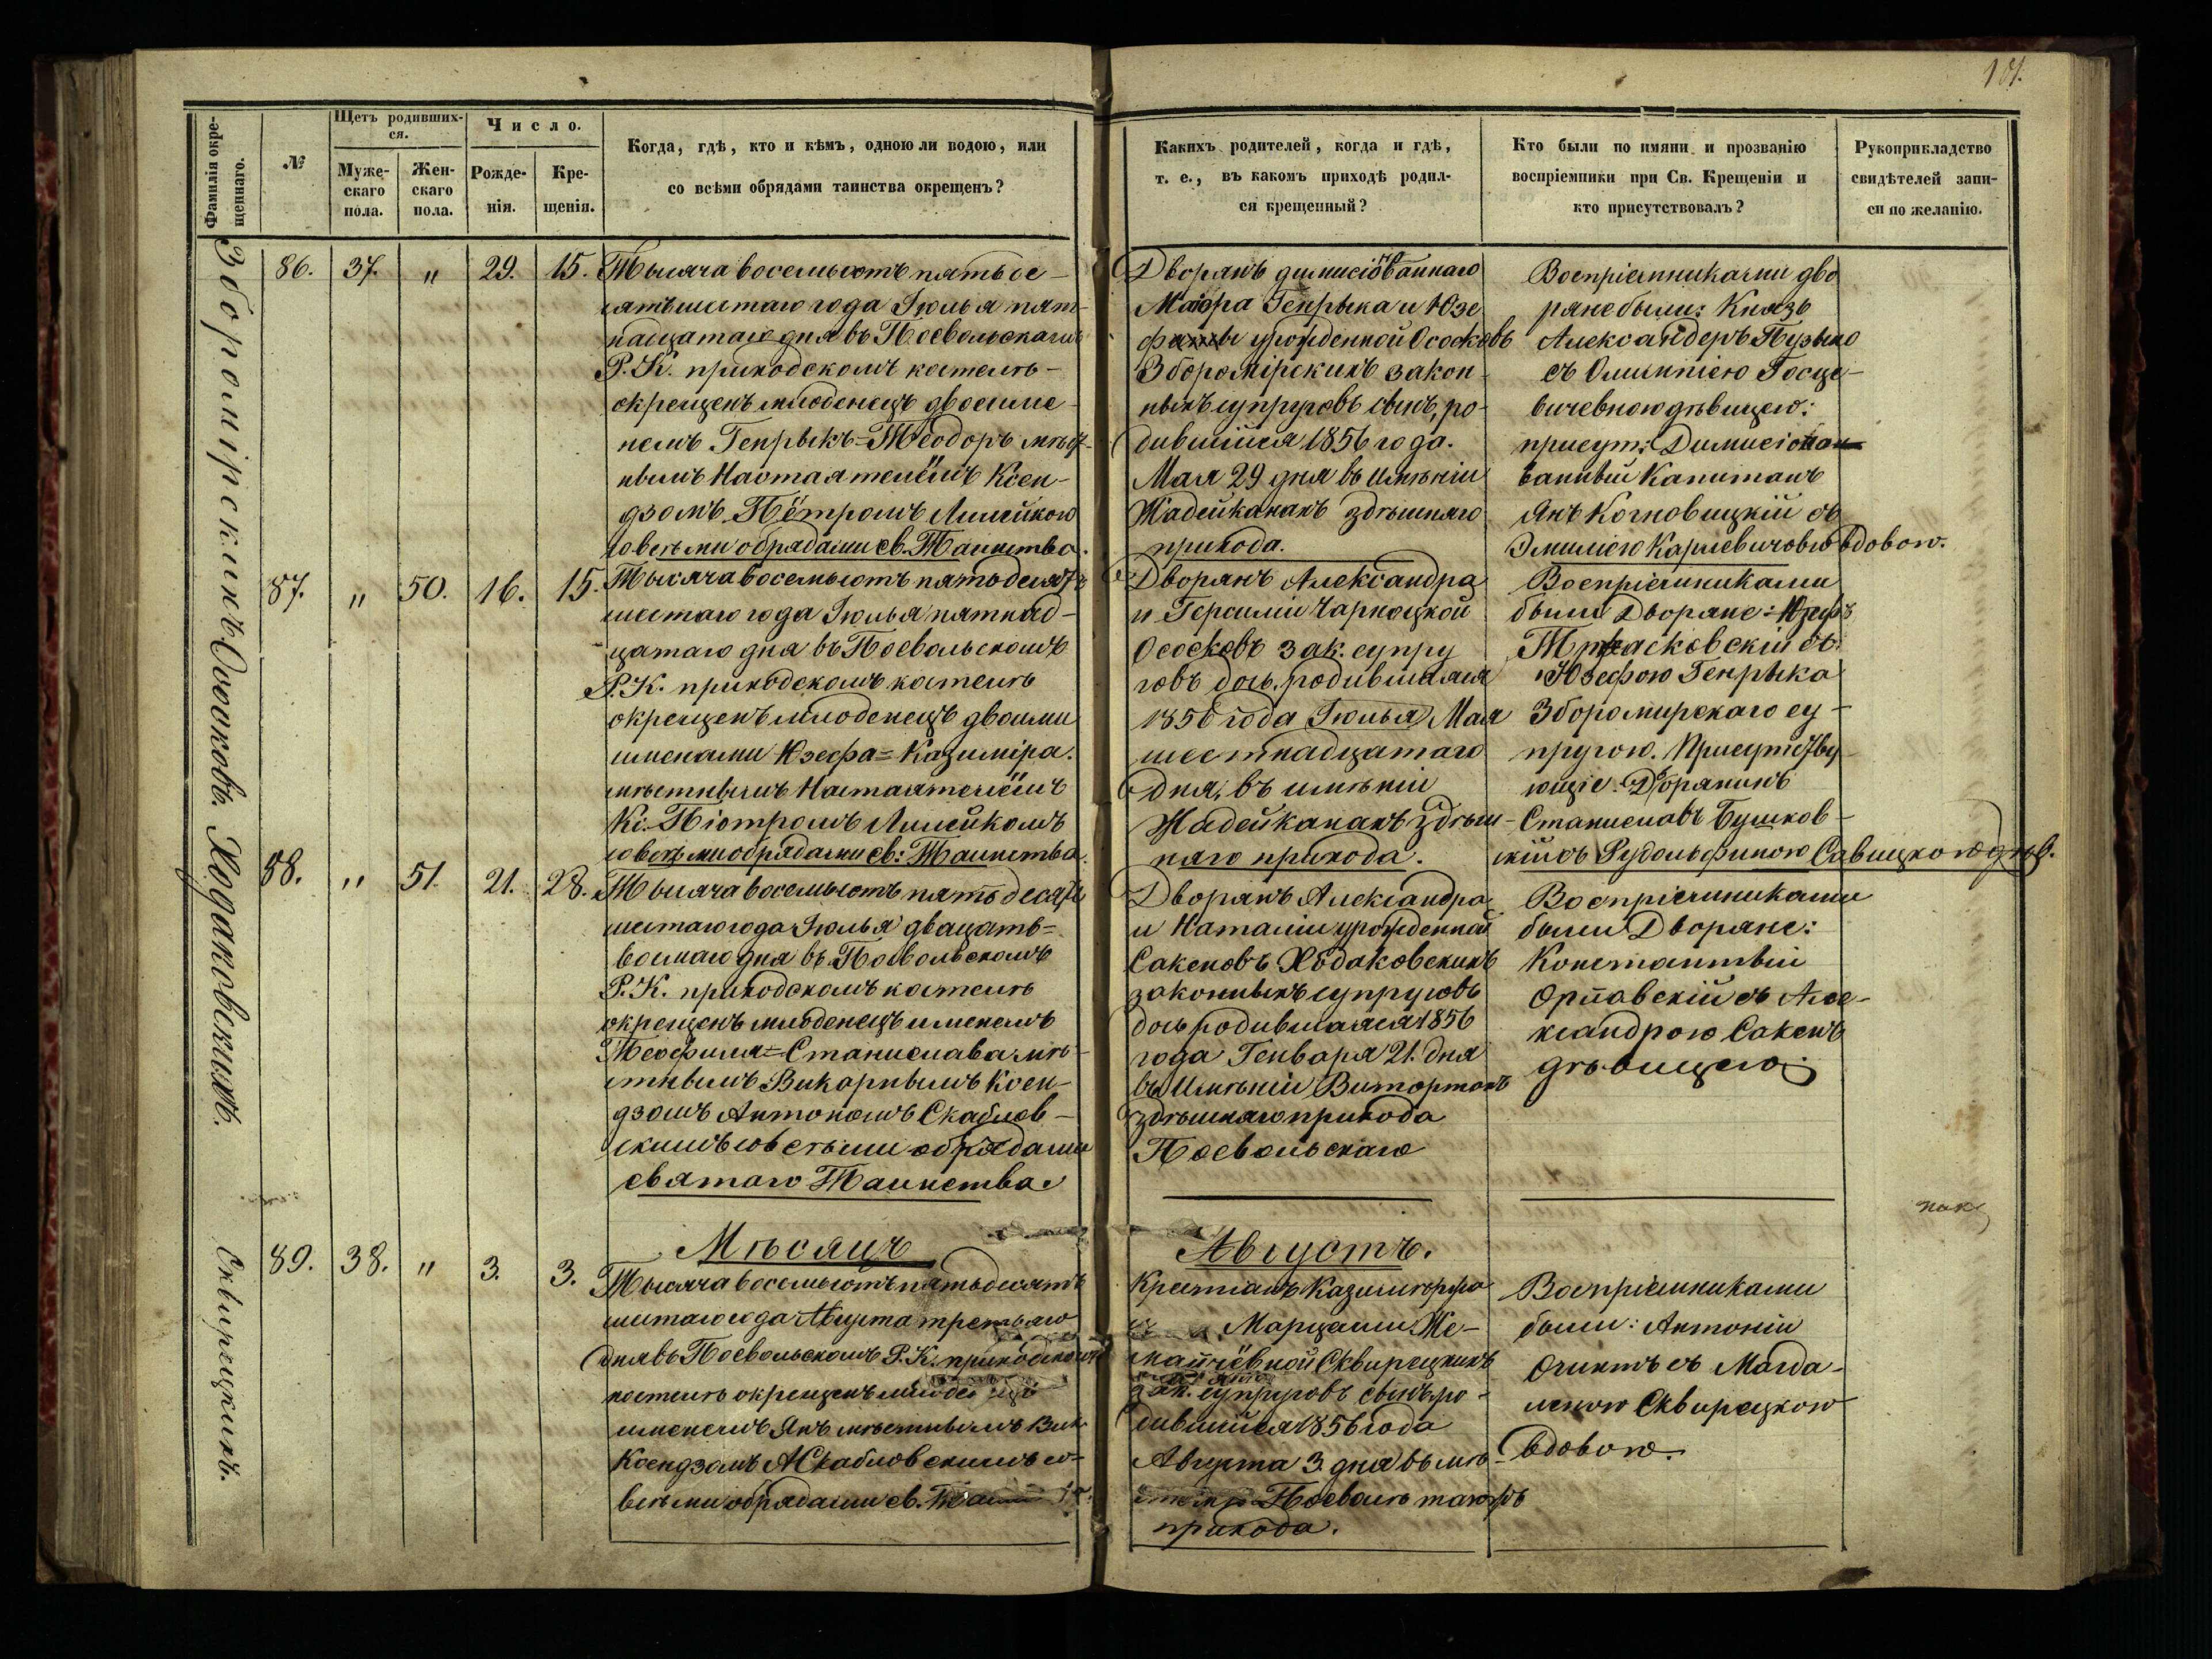 101.
Фамилія окре-
щеннаго.
№
Щетъ родивших-
ся.
Муже-
скаго
пола.
Жен-
скаго
пола.
Число.
Рожде-
нія.
Кре-
щенія.
Когда, гдѣ, кто и кѣмъ, одною ли водою, или
со всѣми обрядами таинства окрещенъ?
Какихъ родителей, когда и гдѣ,
т. е., въ какомъ приходѣ родил-
ся крещенный?
Кто были по имяни и прозванію
воспріемники при Св. Крещеніи и
кто присутствовалъ?
Рукоприкладство
свидѣтелей запи-
си по желанію.
Зборомірскихъ
86. 37. " 29. 15.
Тысяча восемьсотъ пятьде-
сятъ шестаго года Іюлья пят-
надцатаго дня въ Посвольскомъ
Р. К. приходскомъ костелѣ-
окрещенъ младенецъ двоиме-
немъ Генрыкъ=Теодоръ мѣст-
нымъ Настаятелемъ Ксен-
дзомъ Пётромъ Лилейкою
совсѣми обрядами св. Таинства.
Дворянъ димисіованнаго
Маіора Генрыка и Юзе
фы урожденной Ососковъ
Зборомірскихъ закон-
ныхъ супруговъ сынъ, ро-
дившійся 1856 года.
Мая 29 дня въ имѣніи
Жадейканахъ здѣшняго
прихода.
Воспріемниками дво
ряне были: Князь
Александеръ Пузыно
съ Олимпіею Госце-
вичевною дѣвицею:
присут: Димисіо
ванный Капитанъ
Янъ Когновицкій съ
Эмиліею Карлевичовою вдовою.
Ососковъ.
87. " 50. 16. 15.
Тысяча восемьсотъ пятьдесятъ
шестаго года Іюлья пятнад-
цатаго дня въ Посвольскомъ
Р. К. приходскомъ костелѣ
окрещенъ младенецъ двоими
именами Юзефа=Казиміра.
мѣстнымъ Настаятелемъ
Кс. Піотромъ Лилейкомъ
совсѣми обрядами св: Таинства.
Дворянъ Александра
и Герсиліи Чарноцкой
Ососковъ зак. супру
говъ дочь, родившаяся
1856 года Іюлья Мая
шестнадцатаго
дня, въ имѣніи
Жадейканахъ здѣш-
няго прихода.
Воспріемниками
были Дворяне: Юзефъ
съ
Юзефою Генрыка
Зборомирскаго су-
пругою. Присутству-
ющіе. Дворянинъ
Станиславъ Бушков-
скій съ Рудольфиною Савицкою дѣв.
Ходаковскихъ.
88. " 51. 21. 28.
Тысяча восемьсотъ пятьдесятъ
шестаго года Іюлья двацать=
восмаго дня въ Посвольскомъ
Р. К. приходскомъ костелѣ
окрещенъ младенецъ именемъ
Теофиля=Станислава мѣ-
стнымъ Викарнымъ Ксен-
дзомъ Антономъ Скаблов-
скимъ совсѣми обрядами
святаго Таинства.
Дворянъ Александра
и Наталіи урожденной
Сакеновъ Ходаковскихъ
законныхъ супруговъ
дочь родившаяся 1856
года Генваря 21. дня
въ Имѣніи Виторта
здѣшняго прихода
Посвольскаго
Воспріемниками
были Дворяне:
Константый
Орпавскій съ Але-
ксандрою Сакенъ
дѣвицею.
Мѣсяцъ
Августъ.
Сквирецкихъ.
89. 38. " 3. 3.
Тысяча восемьсотъ пятьдесятъ
шестаго года Августа третьяго
дня въ Посвольскомъ Р. К. приходскомъ
костелѣ окрещенъ
именемъ Янъ мѣстнымъ Вик.
Ксендзомъ А Скабловскимъ со-
всѣми обрядами св.
Крестіанъ Казимера
Марцели Же-
Сквирецкихъ
зак. супруговъ сынъ ро-
дившійся 1856 года
Августа 3 дня въ мѣ-
Посволѣ тогожъ
прихода.
Воспріемниками
были: Антоній
съ Магда-
леною Сквирецкою
вдовою.